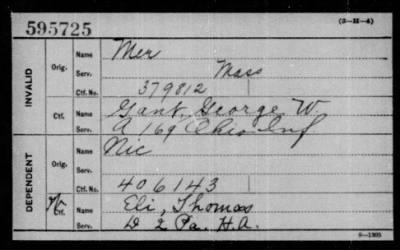 595725
(3-H-4)
INVALID
Orig.
Name Mer
Serv. Mass
Ctf. No. 379812
Ctf.
Name Gant, George W.
Serv. A 169 Ohio Inf
DEPENDENT
Orig.
Name Nic
Serv.
Ctf. No. 406143
Ctf.
Name Eli, Thomas
Serv. D 2 Pa. H.A.